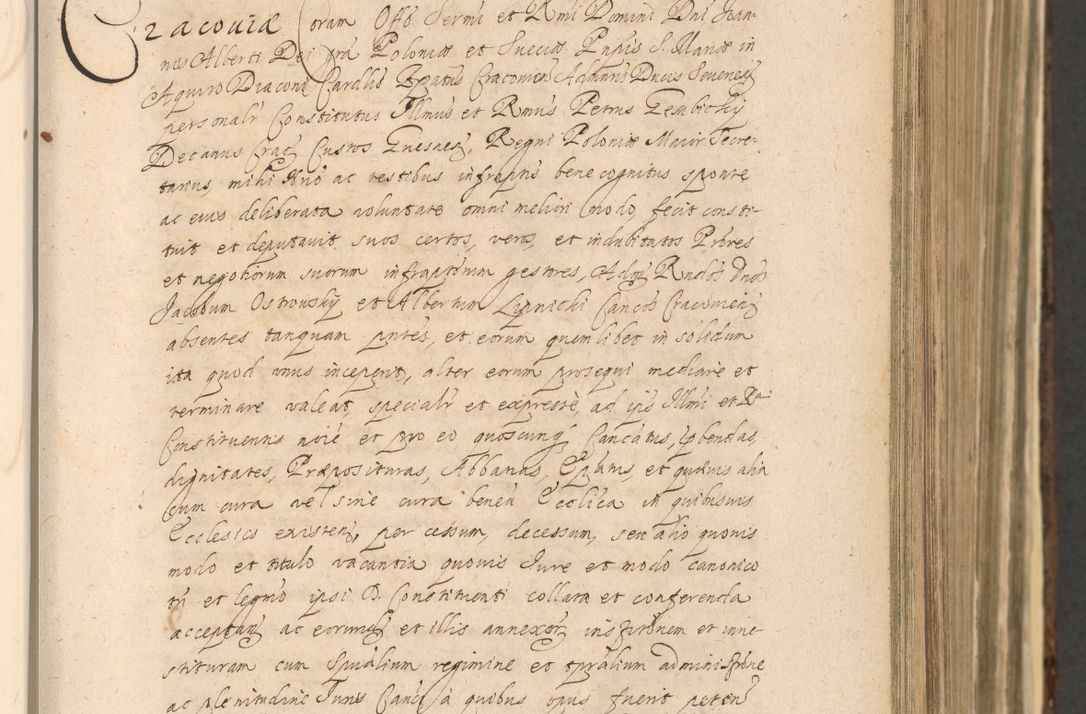 Cracoviæ Coram Offo Sermi et Rmi Domini Dni Joan-
nis Alberti Dei gra Poloniæ et Sueciæ Pnpis S. Mariæ in
Aquiro Diaconi Cardlis Epatus Cracovien Admnris Ducis Severien
personalr Constitutus Illmus et Rmus Petrus Gembichy
Decanus Crac Custos Gnesnen, Regni Poloniæ Maior Secre-
tarius, mihi Nrio ac testibus infraptis bene cognitus sponte
ac eius deliberata voluntate omni meliori modo fecit consti-
tuit et deputavit suos certos, veros, et indubitatos Prores
et negotiorum suorum infraptorum gestores, Adm Rndos Dnos
Jacobum Ostrowsky et Albertum Lipnicki Cancos Cracovien
absentes tanquam pntes, et eorum quemlibet in solidum
ita quod unus inceperit, alter eorum prosequi mediare et
terminare valeat, specialr et expresse, ad ipis Illmi et Rmi
Constituentis noie et pro eo quoscunq Cancatus, Præbendas,
dignitates, Præposituras, Abbatias, Epatus, et quævis alia
cum cura vel sine cura benea Ecclica in quibusvis
Ecclesiis existen, per cessum, decessum, seu alio quovis
modo et titulo vacantia quovis Jure et modo canonico
tn et legmo ipsi D. Constituenti collata et conferenda
acceptan ac eorumd et illis annexor institonem et inve-
stituram cum spualium regimine et tpralium administrone
ac plenitudine Juris Canci à quibus opus fuerit peten